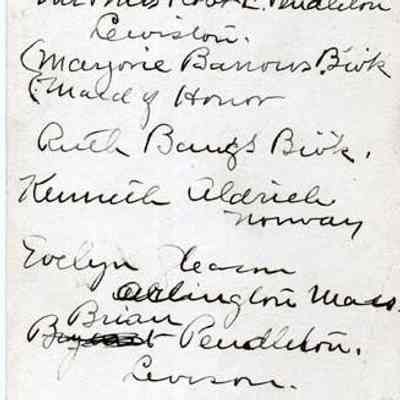 Mr & Mrs Robt E. Pendleton
Lewiston.
(Marjorie Barrows Bick
(Maid of Honor
Ruth Bangs Bick.
Kenneth Aldrich
Norway
Evelyn Gleason
Arlington Mass.
Brian
Pendleton.
Lewison.